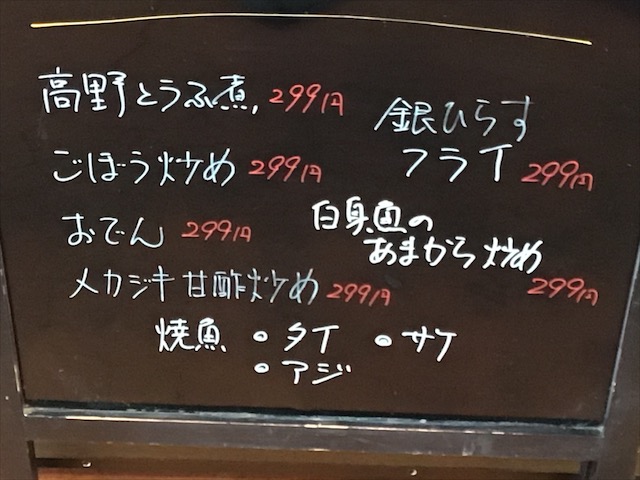 高野とうふ煮, 299円
銀ひらす
フライ 299円
ごぼう炒め 299円
おでん 299円
白身魚の
あまから炒め
299円
メカジキ甘酢炒め 299円
焼魚 ・タイ ・サケ
・アジ